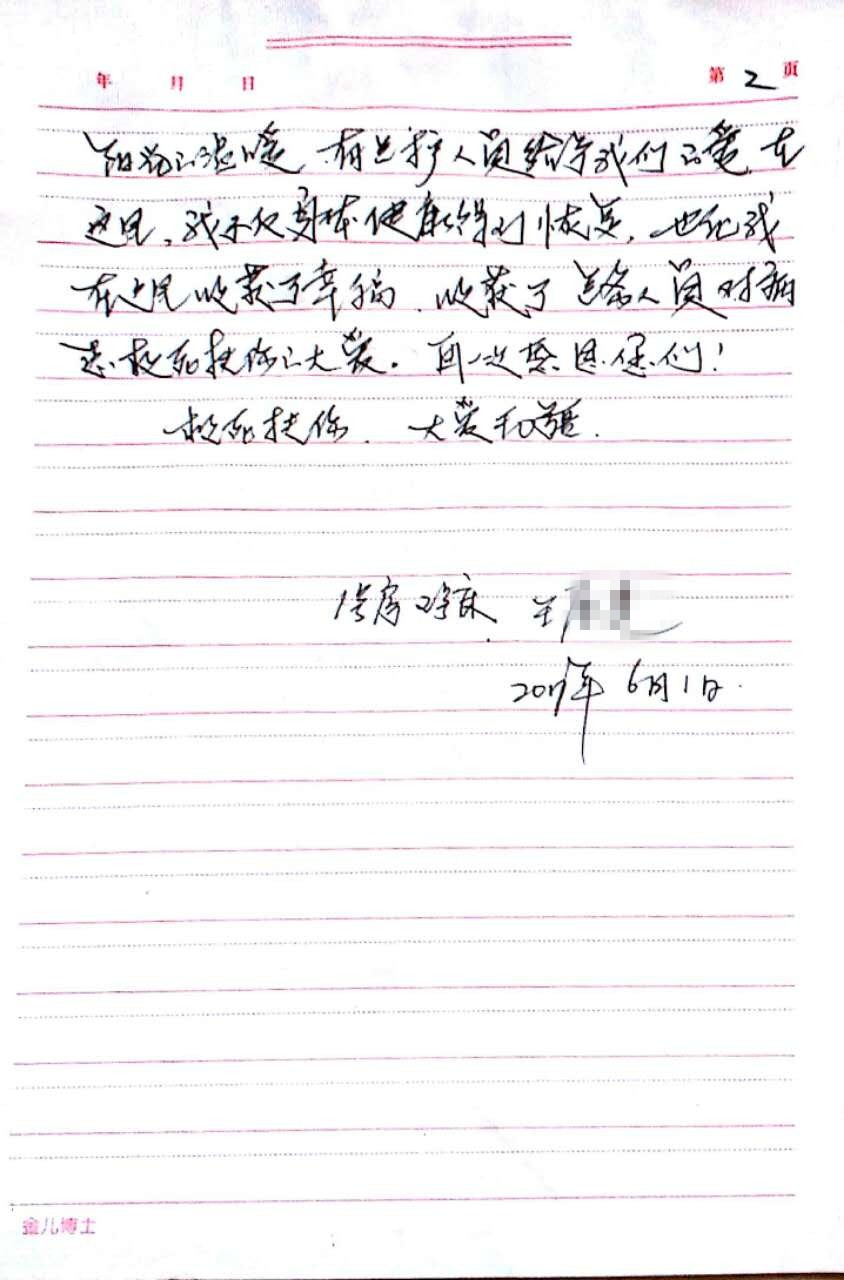 年 月 日 第 2 页
阳光的温暖,有医护人员给予我们的爱,在
这里,我不仅身体健康得到恢复,也让我
在这里收获了幸福,收获了医务人员对病
患救死扶伤的大爱。再一次感恩您们!
救死扶伤,大爱无疆.
1号房 床
2017年6月1日.
金儿博士